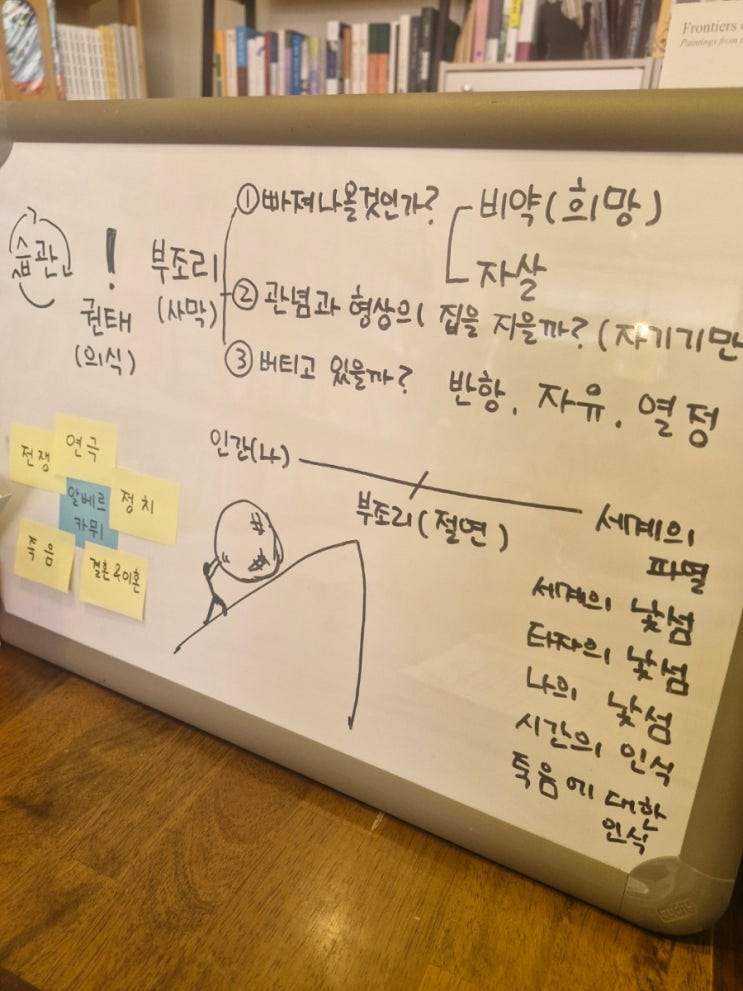 Frontiers
Paintings from
① 빠져나올것인가? 비약(희망)
자살
습관 ! 부조리
권태 (사막)
(의식)
② 관념과 형상의 집을 지을까? (자기기만
③ 버티고 있을까? 반항, 자유, 열정
전쟁 연극
알베르 카뮈
정치
죽음
결혼과이혼
인간(나)
부조리(절연)
세계의
파멸
세계의 낯섬
타자의 낯섬
나의 낯섬
시간의 인식
죽음에 대한
인식